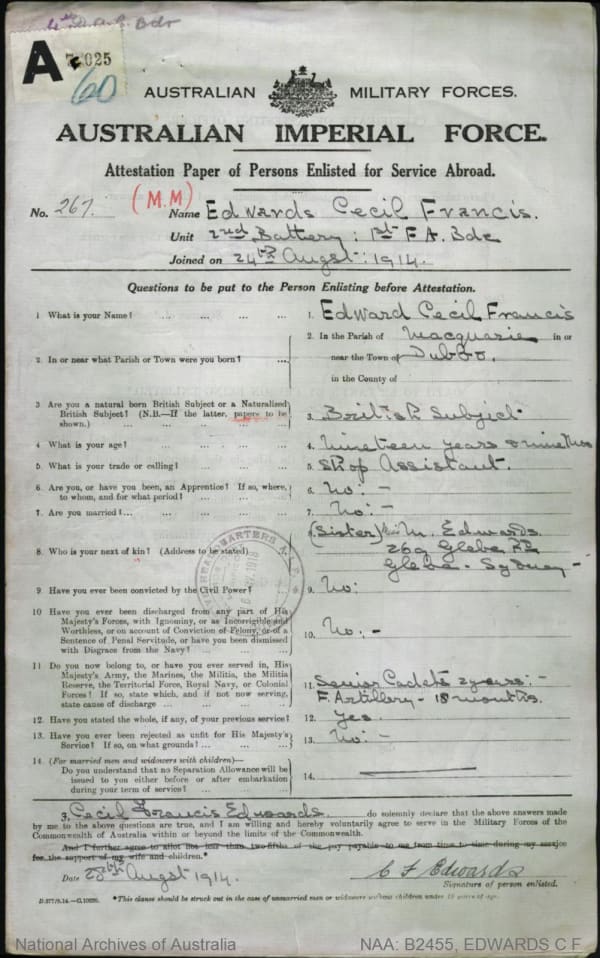 A 025
60
AUSTRALIAN MILITARY FORCES.
AUSTRALIAN IMPERIAL FORCE.
Attestation Paper of Persons Enlisted for Service Abroad.
No. 267. (M.M) Name Edwards Cecil Francis.
Unit 2nd Battery: 1st F.A. Bde
Joined on 24th Augst: 1914.
Questions to be put to the Person Enlisting before Attestation.
1 What is your Name? ... ... ... ... 1. Edward Cecil Francis
2. In or near what Parish or Town were you born? ... 2. In the Parish of Macquarie in or
near the Town of Dubbo.
in the County of
3 Are you a natural born British Subject or a Naturalized
British Subject? (N.B.—If the latter, papers to be
shown.) ... ... ... ... 3. British Subject.
4. What is your age? ... ... ... ... 4. Nineteen years & nine mos
5. What is your trade or calling? ... ... ... 5. Shop Assistant.
6. Are you, or have you been, an Apprentice? If so, where,
to whom, and for what period? ... ... ... 6. No: -
7. Are you married? ... ... ... ... 7. No: -
8. Who is your next of kin? (Address to be stated) 8. (Sister) M. Edwards.
269 Glebe Rd
Glebe - Sydney -
9. Have you ever been convicted by the Civil Power? ... 9. No:
10 Have you ever been discharged from any part of His
Majesty's Forces, with Ignominy, or as Incorrigible and
Worthless, or on account of Conviction of Felony, or of a
Sentence of Penal Servitude, or have you been dismissed
with Disgrace from the Navy? ... ... 10. No: -
11. Do you now belong to, or have you ever served in, His
Majesty's Army, the Marines, the Militia, the Militia
Reserve, the Territorial Force, Royal Navy, or Colonial
Forces? If so, state which, and if not now serving,
state cause of discharge ... ... ... 11. Senior Cadets 2 years: -
F. Artillery - 18 months.
12. Have you stated the whole, if any, of your previous service? 12. Yes.
13. Have you ever been rejected as unfit for His Majesty's
Service? If so, on what grounds? ... ... ... 13. No: -
14. (For married men and widowers with children)—
Do you understand that no Separation Allowance will be
issued to you either before or after embarkation
during your term of service? ... ... 14.
I, Cecil Francis Edwards do solemnly declare that the above answers made
by me to the above questions are true, and I am willing and hereby voluntarily agree to serve in the Military Forces of the
Commonwealth of Australia within or beyond the limits of the Commonwealth.
And I further agree to allot not less than two-fifths of the pay payable to me from time to time during my service
for the support of my wife and children.*
Date 28th Augst 1914. C F Edwards
Signature of person enlisted.
D.377/8.14.—C.10620. *This clause should be struck out in the case of unmarried men or widowers without children under 18 years of age.
National Archives of Australia NAA: B2455, EDWARDS C F